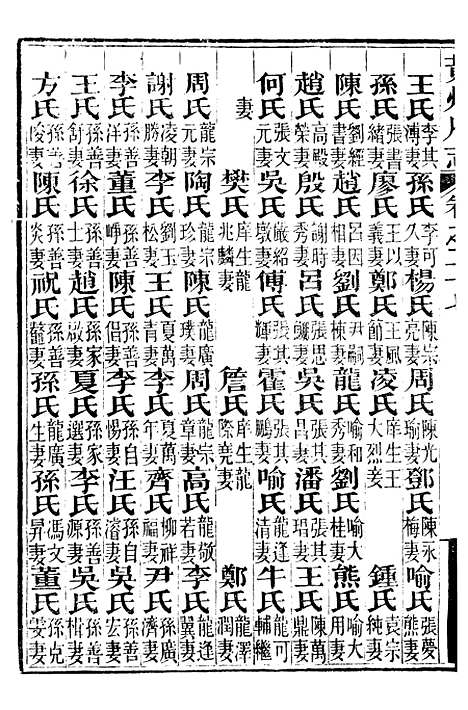 黃州府志 卷之二十七
王氏李其溥妻 孫氏李可久妻 楊氏陳宗亮妻 周氏陳光瑜妻 鄧氏陳永梅妻 喻氏張夢熊妻
孫氏張書緒妻 廖氏王以義妻 鄭氏王鳳節妻 凌氏庠生王大烈妾 鍾氏袁宗純妻
陳氏劉經書妻 趙氏呂因相妻 劉氏尹嗣棟妻 龍氏喻和秀妻 劉氏喻大桂妻 熊氏喻大用妻
趙氏高殿榮妻 殷氏謝時妻 呂氏張思妻 吳氏張其昌妻 潘氏張其瑁妻 王氏陳萬鼎妻
何氏張文元妻 吳氏嚴紹墩妻 傅氏張其輝妻 霍氏張其鵬妻 喻氏龍逢清妻 牛氏龍可輔繼
妻 樊氏庠生龍兆麟妻 詹氏庠生龍際妻 鄭氏龍澤潤妻
周氏龍宗元妻 陶氏龍宗珍妻 陳氏龍廣璞妻 周氏龍宗章妻 高氏龍敬若妻 李氏龍逢翼妻
謝氏凌朝勝妻 李氏劉玉松妻 王氏夏萬青妻 李氏夏萬年妻 齊氏柳祥福妻 尹氏孫廣濟妻
李氏孫善洋妻 董氏孫善崢妻 陳氏孫善倡妻 李氏孫自惕妻 汪氏孫自濬妻 吳氏孫善宏妻
王氏孫善舒妻 徐氏孫善士妻 趙氏孫家放妻 夏氏孫家選妻 李氏孫善源妻 吳氏孫善楫妻
方氏孫善俊妻 陳氏孫善炎妻 祝氏孫善鼇妻 孫氏龍廣生妻 孫氏馮文昇妻 董氏孫克雯妻